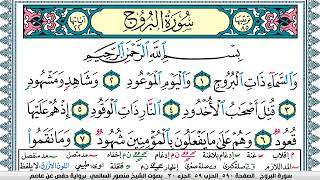 سورة البروج
بِسْمِ ٱللَّهِ ٱلرَّحْمَٰنِ ٱلرَّحِيمِ
وَٱلسَّمَآءِ ذَاتِ ٱلْبُرُوجِ ١ وَٱلْيَوْمِ ٱلْمَوْعُودِ ٢ وَشَاهِدٍ وَمَشْهُودٍ
٣ قُتِلَ أَصْحَٰبُ ٱلْأُخْدُودِ ٤ ٱلنَّارِ ذَاتِ ٱلْوَقُودِ ٥ إِذْ هُمْ عَلَيْهَا
قُعُودٌ ٦ وَهُمْ عَلَىٰ مَا يَفْعَلُونَ بِٱلْمُؤْمِنِينَ شُهُودٌ ٧ وَمَا نَقَمُوا۟
سورة البروج الصفحة ٥٩٠ الجزء ٣٠ بصوت الشيخ منصور السالمي برواية حفص عن عاصم